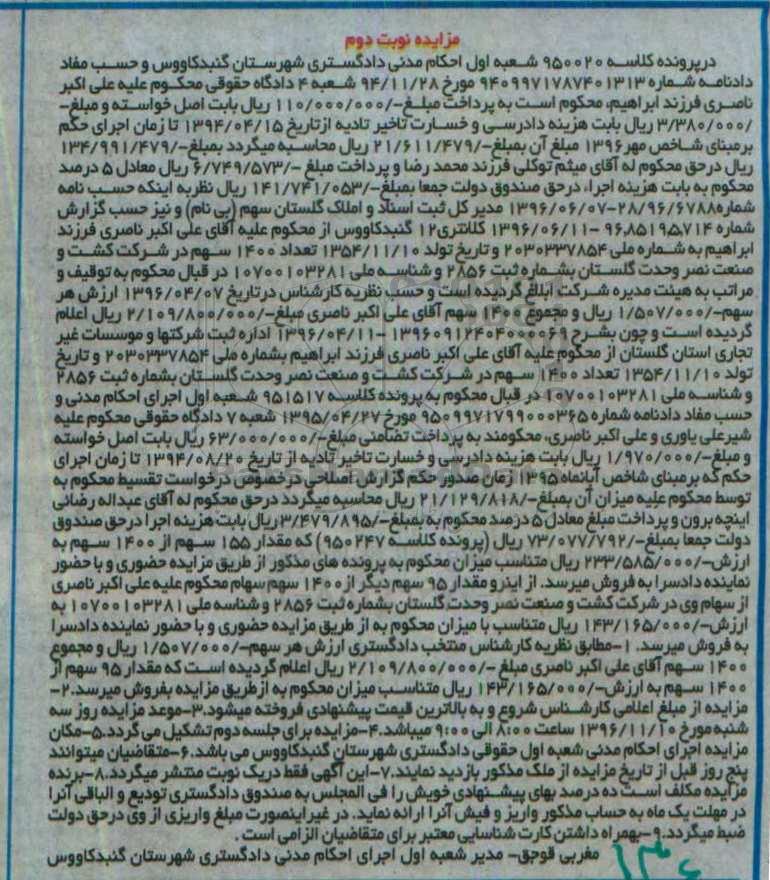 مزایده نوبت دوم
درپرونده کلاسه ۹۵۰۰۲۰ شعبه اول احکام مدنی دادگستری شهرستان گنبدکاووس و حسب مفاد
دادنامه شماره ۹۴۰۹۹۷۱۷۸۷۴۰۱۳۱۳ مورخ ۹۴/۱۱/۲۸ شعبه ۴ دادگاه حقوقی محکوم علیه علی اکبر
ناصری فرزند ابراهیم، محکوم است به پرداخت مبلغ-/۱۱۰/۰۰۰/۰۰۰ ریال بابت اصل خواسته و مبلغ-
/۳/۳۸۰/۰۰۰ ریال بابت هزینه دادرسی و خسارت تاخیر تادیه ازتاریخ ۱۳۹۴/۰۴/۱۵ تا زمان اجرای حکم
برمبنای شاخص مهر۱۳۹۶ مبلغ آن بمبلغ-/۲۱/۶۱۱/۴۷۹ ریال محاسبه میگردد بمبلغ-/۱۳۴/۹۹۱/۴۷۹
ریال درحق محکوم له آقای میثم توکلی فرزند محمد رضا و پرداخت مبلغ -/۶/۷۴۹/۵۷۳ ریال معادل ۵ درصد
محکوم به بابت هزینه اجرا، درحق صندوق دولت جمعا بمبلغ-/۱۴۱/۷۴۱/۰۵۳ ریال نظربه اینکه حسب نامه
شماره۲۸/۹۶/۶۷۸۸-۱۳۹۶/۰۶/۰۷ مدیر کل ثبت اسناد و املاک گلستان سهم (بی نام) و نیز حسب گزارش
شماره ۹۶,۸۵۱۹۵,۷۱۴ -۱۳۹۶/۰۶/۱۱ کلانتری۱۲ گنبدکاووس از محکوم علیه آقای علی اکبر ناصری فرزند
ابراهیم به شماره ملی ۲۰۳۰۳۳۷۸۵۴ و تاریخ تولد ۱۳۵۴/۱۱/۱۰ تعداد ۱۴۰۰ سهم در شرکت کشت و
صنعت نصر وحدت گلستان بشماره ثبت ۲۸۵۶ و شناسه ملی ۱۰۷۰۰۱۰۳۲۸۱ در قبال محکوم به توقیف و
مراتب به هیئت مدیره شرکت ابلاغ گردیده است و حسب نظریه کارشناس درتاریخ ۱۳۹۶/۰۴/۰۷ ارزش هر
سهم-/۱/۵۰۷/۰۰۰ ریال و مجموع ۱۴۰۰ سهم آقای علی اکبر ناصری مبلغ-/۲/۱۰۹/۸۰۰/۰۰۰ ریال اعلام
گردیده است و چون بشرح ۱۳۹۶۰۹۱۲۴۰۴۰۰۰۰۶۹ -۱۳۹۶/۰۴/۱۱ اداره ثبت شرکتها و موسسات غیر
تجاری استان گلستان از محکوم علیه آقای علی اکبر ناصری فرزند ابراهیم بشماره ملی ۲۰۳۰۳۳۷۸۵۴ و تاریخ
تولد ۱۳۵۴/۱۱/۱۰ تعداد ۱۴۰۰ سهم در شرکت کشت و صنعت نصر وحدت گلستان بشماره ثبت ۲۸۵۶
و شناسه ملی ۱۰۷۰۰۱۰۳۲۸۱ در قبال محکوم به پرونده کلاسه ۹۵۱۵۱۷ شعبه اول اجرای احکام مدنی و
حسب مفاد دادنامه شماره ۹۵۰۹۹۷۱۷۹۹۰۰۰۳۶۵ مورخ ۱۳۹۵/۰۴/۲۷ شعبه ۷ دادگاه حقوقی محکوم علیه
شیرعلی یاوری و علی اکبر ناصری، محکومند به پرداخت تضامنی مبلغ-/۶۳/۰۰۰/۰۰۰ ریال بابت اصل خواسته
و مبلغ-/۱/۹۷۰/۰۰۰ ریال بابت هزینه دادرسی و خسارت تاخیر تادیه از تاریخ ۱۳۹۴/۰۸/۲۰ تا زمان اجرای
حکم که برمبنای شاخص آبانماه ۱۳۹۵ زمان صدور حکم گزارش اصلاحی درخصوص درخواست تقسیط محکوم به
توسط محکوم علیه میزان آن بمبلغ-/۲۱/۱۲۹/۸۱۸ ریال محاسبه میگردد درحق محکوم له آقای عبداله رضائی
اینچه برون و پرداخت مبلغ معادل ۵ درصد محکوم به بمبلغ-/۳/۴۷۹/۸۹۵ ریال بابت هزینه اجرا درحق صندوق
دولت جمعا بمبلغ-/۷۳/۰۷۷/۷۹۲ ریال (پرونده کلاسه ۹۵۰۲۴۷) که مقدار ۱۵۵ سهم از ۱۴۰۰ سهم به
ارزش-/۲۳۳/۵۸۵/۰۰۰ ریال متناسب میزان محکوم به پرونده های مذکور از طریق مزایده حضوری و با حضور
نماینده دادسرا به فروش میرسد. از اینرو مقدار ۹۵ سهم دیگر از ۱۴۰۰ سهم سهام محکوم علیه علی اکبر ناصری
از سهام وی در شرکت کشت و صنعت نصر وحدت گلستان بشماره ثبت ۲۸۵۶ و شناسه ملی ۱۰۷۰۰۱۰۳۲۸۱ به
ارزش-/۱۴۳/۱۶۵/۰۰۰ ریال متناسب با میزان محکوم به از طریق مزایده حضوری و با حضور نماینده دادسرا
به فروش میرسد. ۱-مطابق نظریه کارشناس منتخب دادگستری ارزش هر سهم-/۱/۵۰۷/۰۰۰ ریال و مجموع
۱۴۰۰ سهم آقای علی اکبر ناصری مبلغ -/۲/۱۰۹/۸۰۰/۰۰۰ ریال اعلام گردیده است که مقدار ۹۵ سهم از
۱۴۰۰ سهم به ارزش-/۱۴۳/۱۶۵/۰۰۰ ریال متناسب میزان محکوم به ازطریق مزایده بفروش میرسد.۲-
مزایده از مبلغ اعلامی کارشناس شروع و به بالاترین قیمت پیشنهادی فروخته میشود.۳-موعد مزایده روز سه
شنبه مورخ ۱۳۹۶/۱۱/۱۰ ساعت ۸:۰۰ الی ۹:۰۰ میباشد.۴-مزایده برای جلسه دوم تشکیل می گردد.۵-مکان
مزایده اجرای احکام مدنی شعبه اول حقوقی دادگستری شهرستان گنبدکاووس می باشد.۶-متقاضیان میتوانند
پنج روز قبل از تاریخ مزایده از ملک مذکور بازدید نمایند.۷-این آگهی فقط دریک نوبت منتشر میگردد.۸-برنده
مزایده مکلف است ده درصد بهای پیشنهادی خویش را فی المجلس به صندوق دادگستری تودیع و الباقی آنرا
در مهلت یک ماه به حساب مذکور واریز و فیش آنرا ارائه نماید. در غیراینصورت مبلغ واریزی از وی درحق دولت
ضبط میگردد.۹-بهمراه داشتن کارت شناسایی معتبر برای متقاضیان الزامی است .
مغربی قوجق- مدیر شعبه اول اجرای احکام مدنی دادگستری شهرستان گنبدکاووس